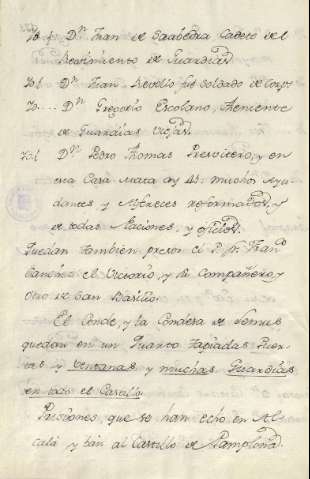 Dn Fran de Saabedra Cadete del
Reximiento de Guardias
Dn Fran Revollo fue Soldado de Corps
Dn Gregorio Escolano, theniente
de Guardias viejas
Dn Pedro Thomas Presvitero, y en
esa Casa Mata ay 45. muchos Ayu
dantes y Alfereces reformados, y
de todas Naciones, y oficios
Quedan tambien presos el P. Fr. Fran
Sanchez el Victorio, y su Compañero, y
otro de San Basilio.
El Conde, y la Condesa de Lemus
quedan en un Quarto tapiadas Puer
tas y ventanas y muchas Guardias
en todo el Castillo
Prisiones que se han echo en Al
calá y ban al Castillo de Pamplona.